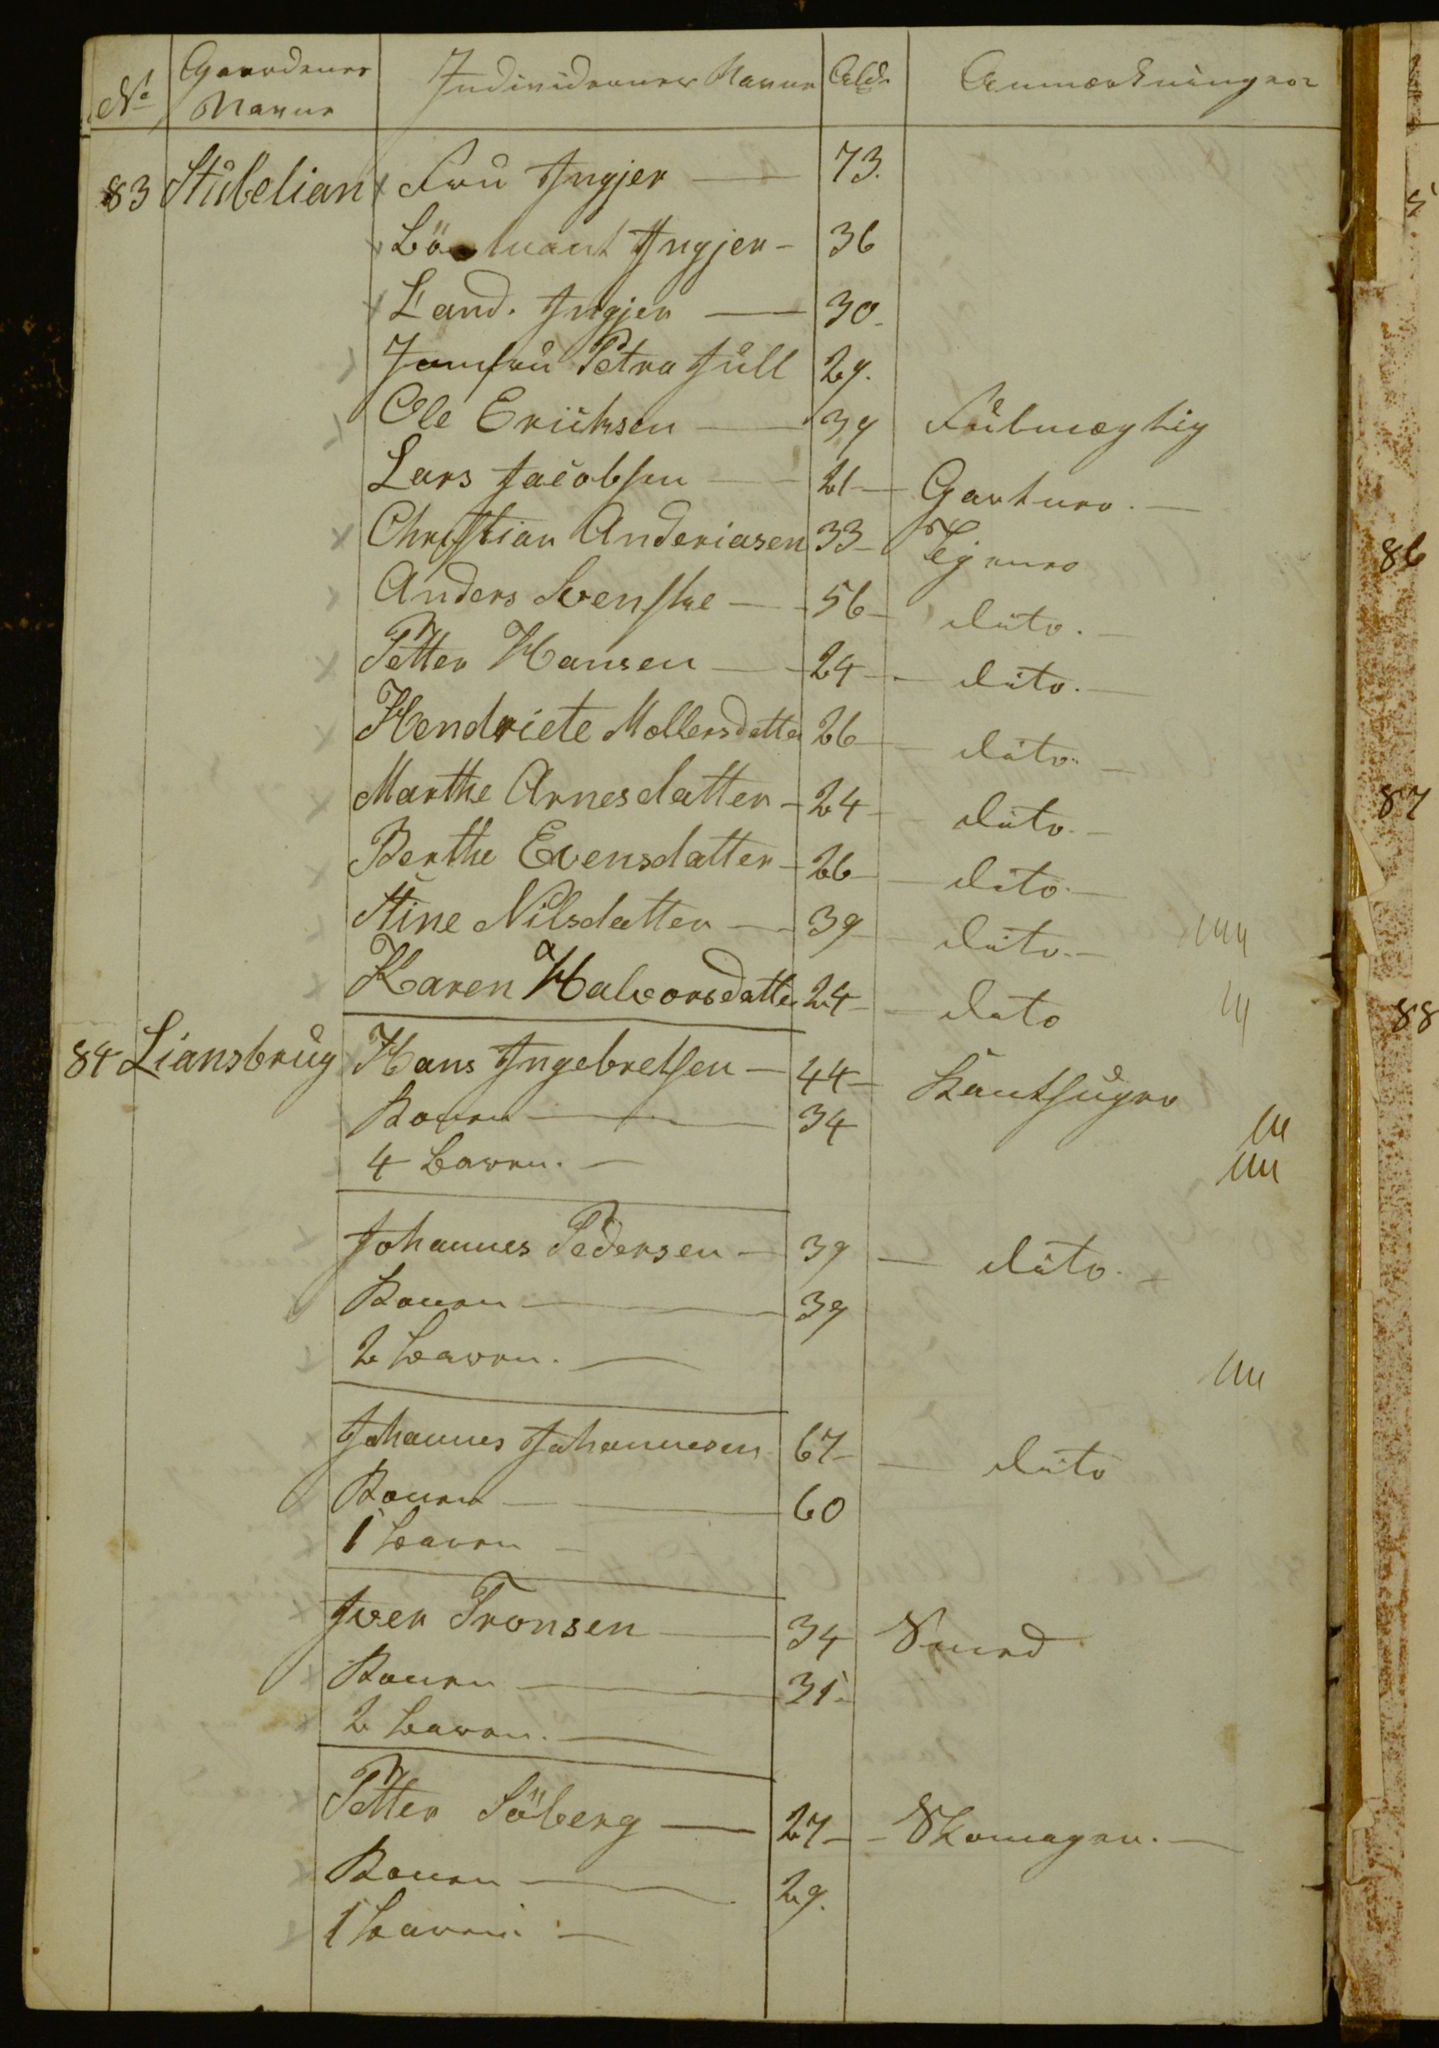 No Gaardenes Navne Individernes Navne Ald. Anmærkninger
83 Stubelian Fru Ingjer 73.
Ingjer 36
Cand. Ingjer 30
Jomfru Petra Jull 29.
Ole Eriksen 39 Fulmægtig
Lars Jacobsen 21 Gartner.
Christian Anderiasen 33 Tjener
Anders Svenske 56 dito.
Petter Hansen 24 dito.
Hendriete Mollersdatter 26 dito.
Marthe Arnesdatter 24 dito.
Berthe Evensdatter 26 dito.
Stine Nilsdatter 39 dito.
Karen Halvorsdatter 24 dito
84 Liansbrug Hans Ingebretsen 44 Kantsuger
Konen 34
4 Børn.
Johannes Pedersen 39 dito.
Konen 39
2 Børn.
Johannes Johannesen 67 dito
Konen 60
1 Børn
Iver Tronsen 34 Smed
Konen 31.
2 Børn.
Petter Söberg 27 Skomager.
Konen 29.
1 Børn.
86
87
88